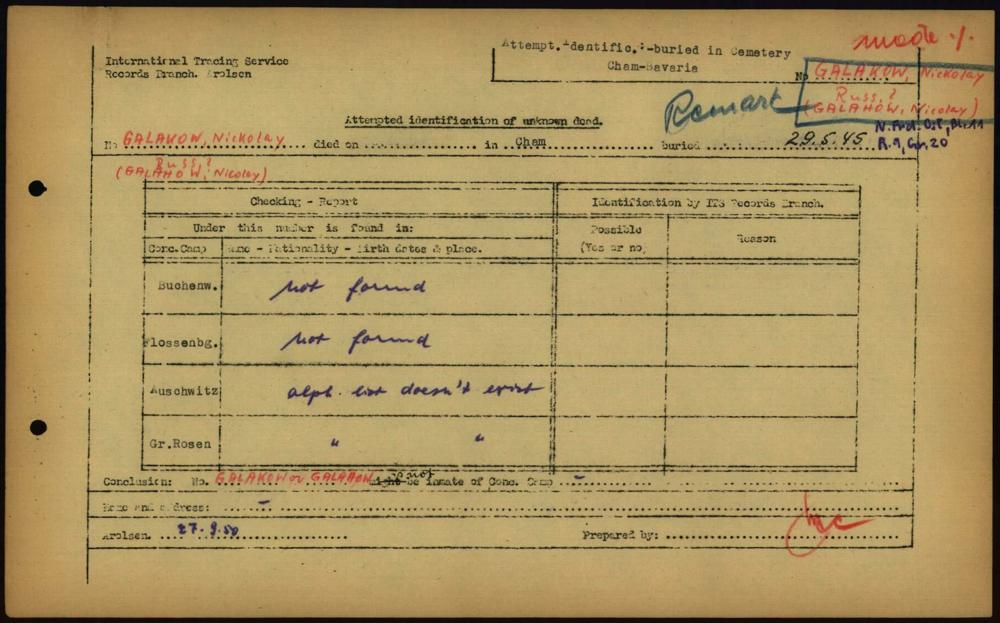 made %.
International Tracing Service
Records Branch. Arolsen
Attempt. Identific.:-buried in Cemetery
Cham-Bavaria
No GALAKOW, Nickolay
Russ.?
(GALAHOW, Nicolay)
Remark
Attempted identification of unknown dead.
No GALAKOW, Nickolay died on in Cham buried 29.5.45
R.9, Gr. 20
Russ.?
(GALAHOW, Nicolay)
Checking - Report
Identification by ITS Records Branch.
Under this number is found in:
Possible
(Yes or no)
Reason
Conc.Camp
Name - Nationality - Birth dates & place.
Buchenw. not found
Flossenbg. not found
Auschwitz alph. list doesn't exist
Gr.Rosen " "
Conclusion: No. GALAKOW or GALAHOW might not be inmate of Conc. Camp -
Name and address: -
Arolsen. 27.9.50 Prepared by: